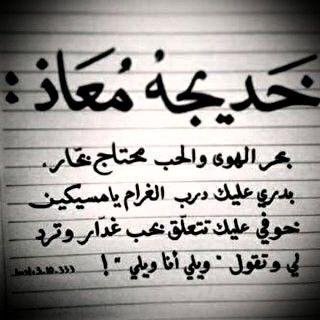 خديجهُ مُعاذ :
بحر الهوى والحب محتاج بحّار .
بدري عليك درب الغرام يامسيكين
خوفي عليك تتعلّق بحب غدّار وترد
لي وتقول " ويلي أنا ويلي " !